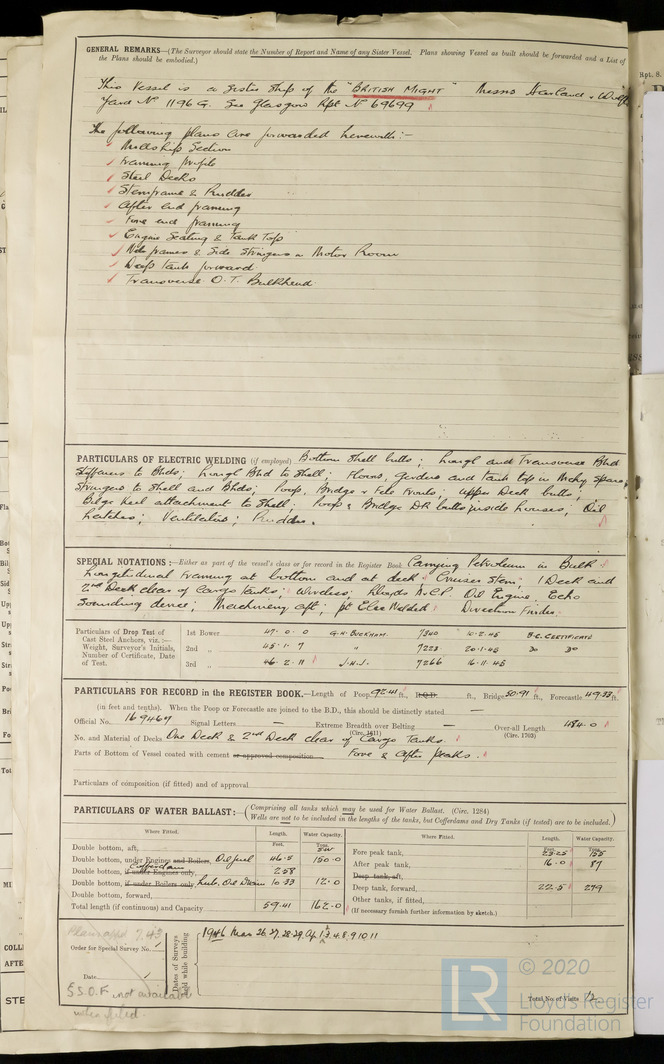 GENERAL REMARKS—(The Surveyor should state the Number of Report and Name of any Sister Vessel. Plans showing Vessel as built should be forwarded and a List of
the Plans should be embodied.)
Rpt. 8.
This Vessel is a sister ship of the "BRITISH MIGHT" Messrs Harland & Wolff
Yard No 1196G. See Glasgow Rpt No 69699
The following plans are forwarded herewith:-
Midship Section
Framing profile
Steel Decks
Sternframe & Rudder
After end framing
Fore end framing
Engine Seating & Tank Top
Web frames & Side Stringers in Motor Room
Deep tank forward
Transverse O.T. Bulkhead
PARTICULARS OF ELECTRIC WELDING (if employed) Bottom Shell butts; Longl and Transverse Bhd
Stiffeners to Bhds; Longl Bhd to Shell; Floors, Girders and tank top in Mchy Space;
Stringers to Shell and Bhds; Poop, Bridge & Fcle Fronts; Upper Deck butts;
Bilge keel attachment to Shell; Poop & Bridge Dk butts inside houses; Oil
hatches; Ventilators; Rudder.
SPECIAL NOTATIONS:—Either as part of the vessel's class or for record in the Register Book Carrying Petroleum in Bulk
Longitudinal framing at bottom and at deck; Cruiser Stern; 1 Deck and
2nd Deck clear of Cargo Tanks; Wireless; Lloyds A&CP Oil Engine, Echo
Sounding device; Machinery aft; pt Elec Welded Direction Finder.
Particulars of Drop Test of
Cast Steel Anchors, viz.:—
Weight, Surveyor's Initials,
Number of Certificate, Date
of Test.
1st Bower 47.0.0 G.H. BUCKHAM. 7340 10.2.45 B.C. CERTIFICATE
2nd „ 45.1.7 " 7223 20.1.45 Do Do
3rd „ 46.2.11 J.H.J. 7266 16.11.45
PARTICULARS FOR RECORD in the REGISTER BOOK.—Length of Poop 92.41 ft., R.Q.D. ft., Bridge 50.91 ft., Forecastle 49.33 ft.
(in feet and tenths). When the Poop or Forecastle are joined to the B.D., this should be distinctly stated —
Official No. 169469 Signal Letters — Extreme Breadth over Belting — Over-all Length 484.0
(Circ. 1611) (Circ. 1703)
No. and Material of Decks One Deck & 2nd Deck clear of Cargo Tanks.
Parts of Bottom of Vessel coated with cement or approved composition Fore & After Peaks.
Particulars of composition (if fitted) and of approval
PARTICULARS OF WATER BALLAST:—(Comprising all tanks which may be used for Water Ballast. (Circ. 1284)
Wells are not to be included in the lengths of the tanks, but Cofferdams and Dry Tanks (if tested) are to be included.)
Where Fitted. Length. Water Capacity. Where Fitted. Length. Water Capacity.
Feet. Tons. Feet. Tons.
Double bottom, aft,
Double bottom, under Engines and Boilers, Oil fuel 46.5 150.0
Double bottom, if under Engines only, Cofferdam 2.58
Double bottom, if under Boilers only, Lub. Oil Drain 10.33 12.0
Double bottom, forward,
Total length (if continuous) and Capacity 59.41 162.0
Fore peak tank, 23.25 155
After peak tank, 16.0 87
Deep tank, aft,
Deep tank, forward, 22.5 279
Other tanks, if fitted,
(If necessary furnish further information by sketch.)
Order for Special Survey No.
Date
Dates of Surveys held while building
1946 Mar 26.27.28.29. Ap 1.2.3.4.8.9.10.11
S.S.O.F. not available
when filed.
Total No. of Visits 12
LR
© 2020
Lloyd's Register
Foundation